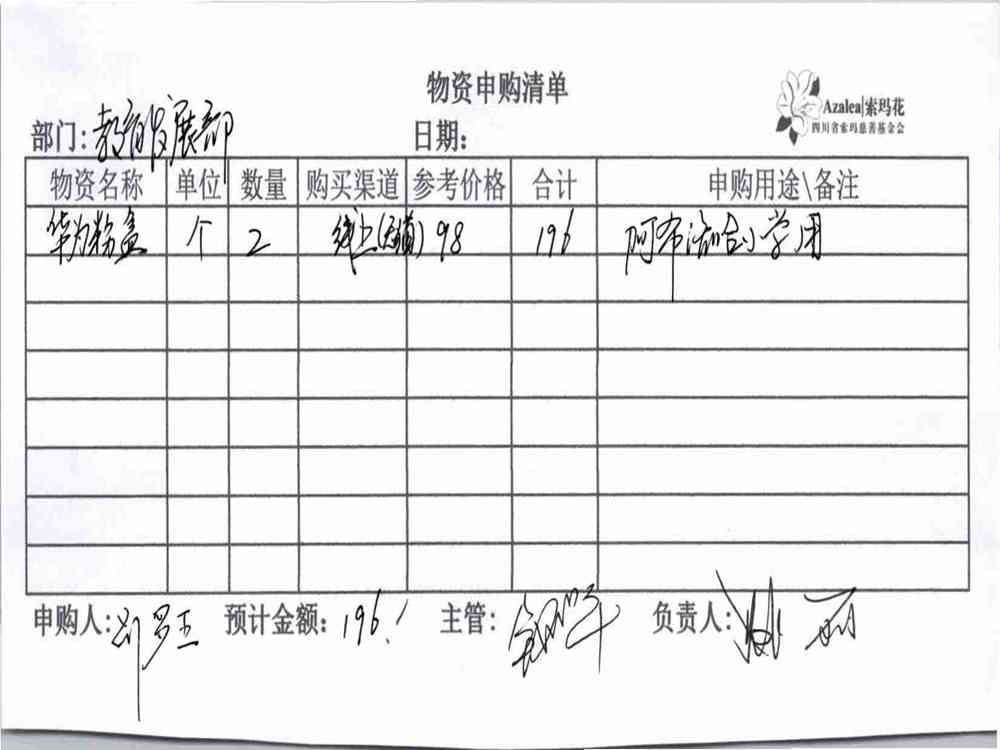 物资申购清单
Azalea|索玛花
四川省索玛慈善基金会
部门:教育发展部 日期:
物资名称 单位 数量 购买渠道 参考价格 合计 申购用途\备注
华为粉盒 个 2 线上 98 196 阿布洛哈小学用
申购人: 预计金额:196 主管: 负责人: